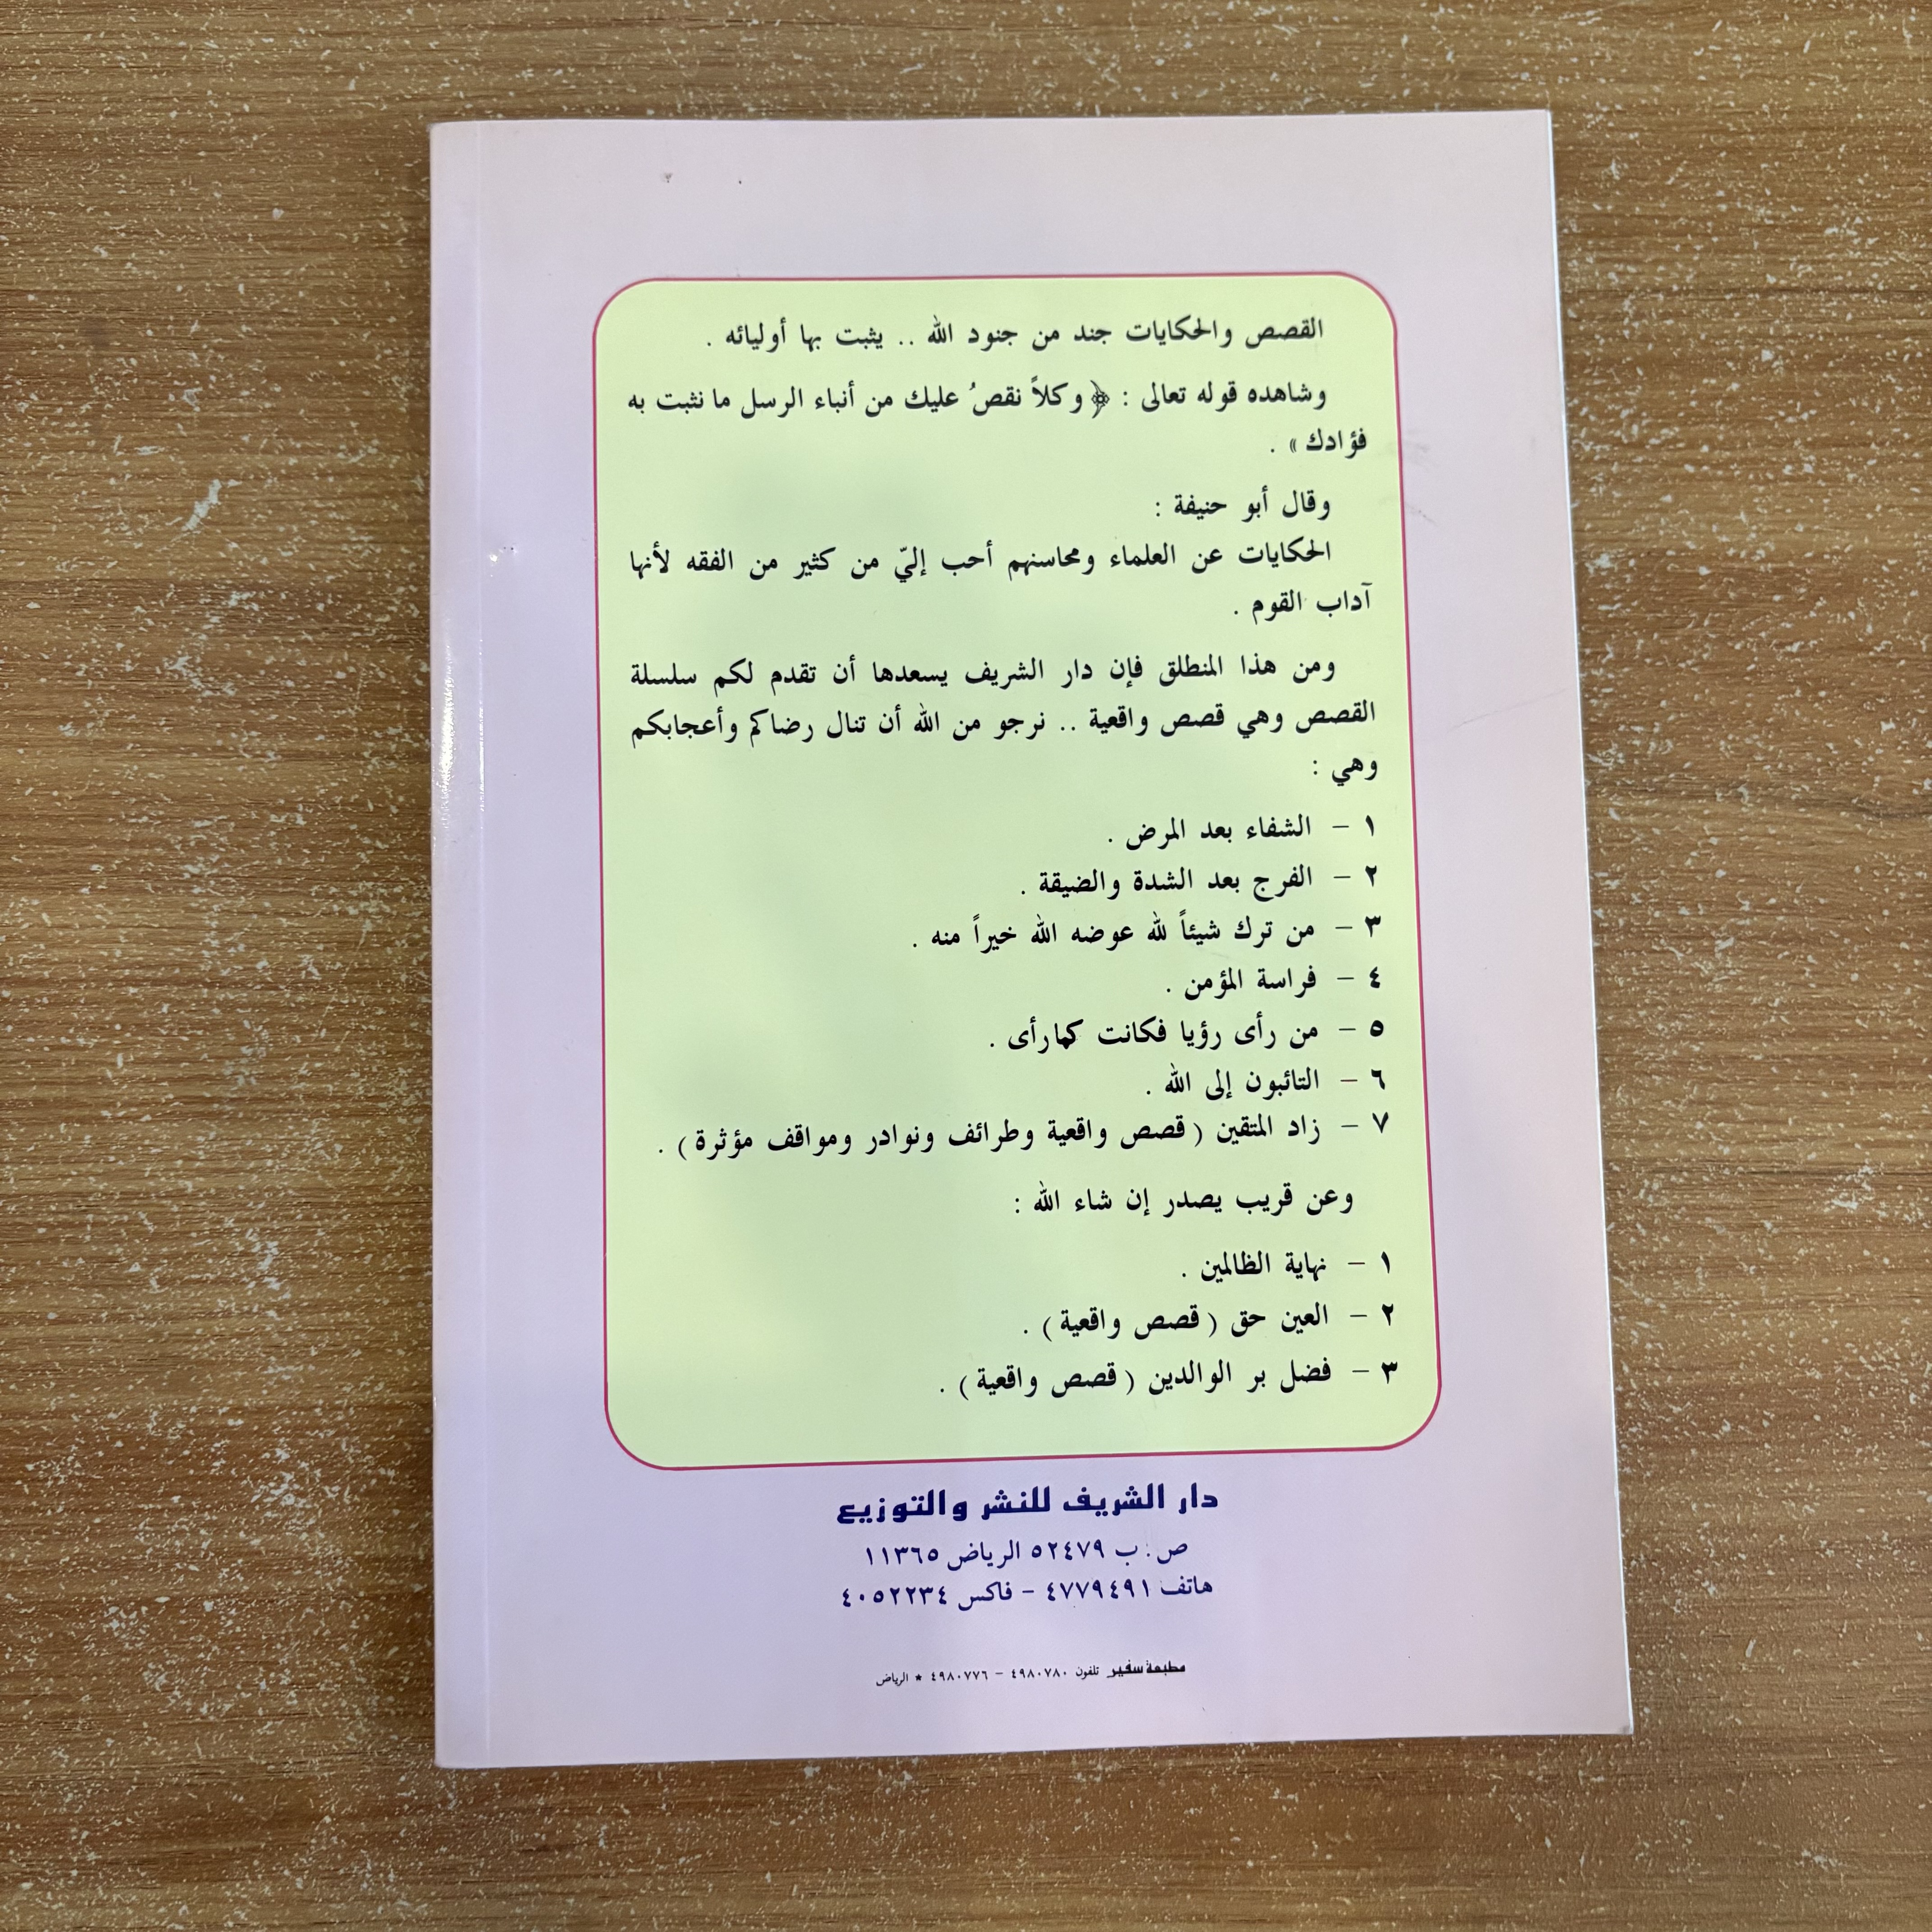 القصص والحكايات جند من جنود الله .. يثبت بها أوليائه .
وشاهده قوله تعالى : ﴿ وكلاً نقصُ عليك من أنباء الرسل ما نثبت به
فؤادك » .
وقال أبو حنيفة :
الحكايات عن العلماء ومحاسنهم أحب إليّ من كثير من الفقه لأنها
آداب القوم .
ومن هذا المنطلق فإن دار الشريف يسعدها أن تقدم لكم سلسلة
القصص وهي قصص واقعية .. نرجو من الله أن تنال رضاكم وأعجابكم
وهي :
١ – الشفاء بعد المرض .
٢ – الفرج بعد الشدة والضيقة .
٣ – من ترك شيئاً لله عوضه الله خيراً منه .
٤ – فراسة المؤمن .
٥ – من رأى رؤيا فكانت كما رأى .
٦ – التائبون إلى الله .
٧ – زاد المتقين ( قصص واقعية وطرائف ونوادر ومواقف مؤثرة ) .
وعن قريب يصدر إن شاء الله :
١ – نهاية الظالمين .
٢ – العين حق ( قصص واقعية ) .
٣ – فضل بر الوالدين ( قصص واقعية ) .
دار الشريف للنشر والتوزيع
ص . ب ٥٢٤٧٩ الرياض ١١٣٦٥
هاتف ٤٧٧٩٤٩١ – فاكس ٤٠٥٢٢٣٤
مطبعة سفير تلفون ٤٩٨٠٧٨٠ – ٤٩٨٠٧٧٦ * الرياض